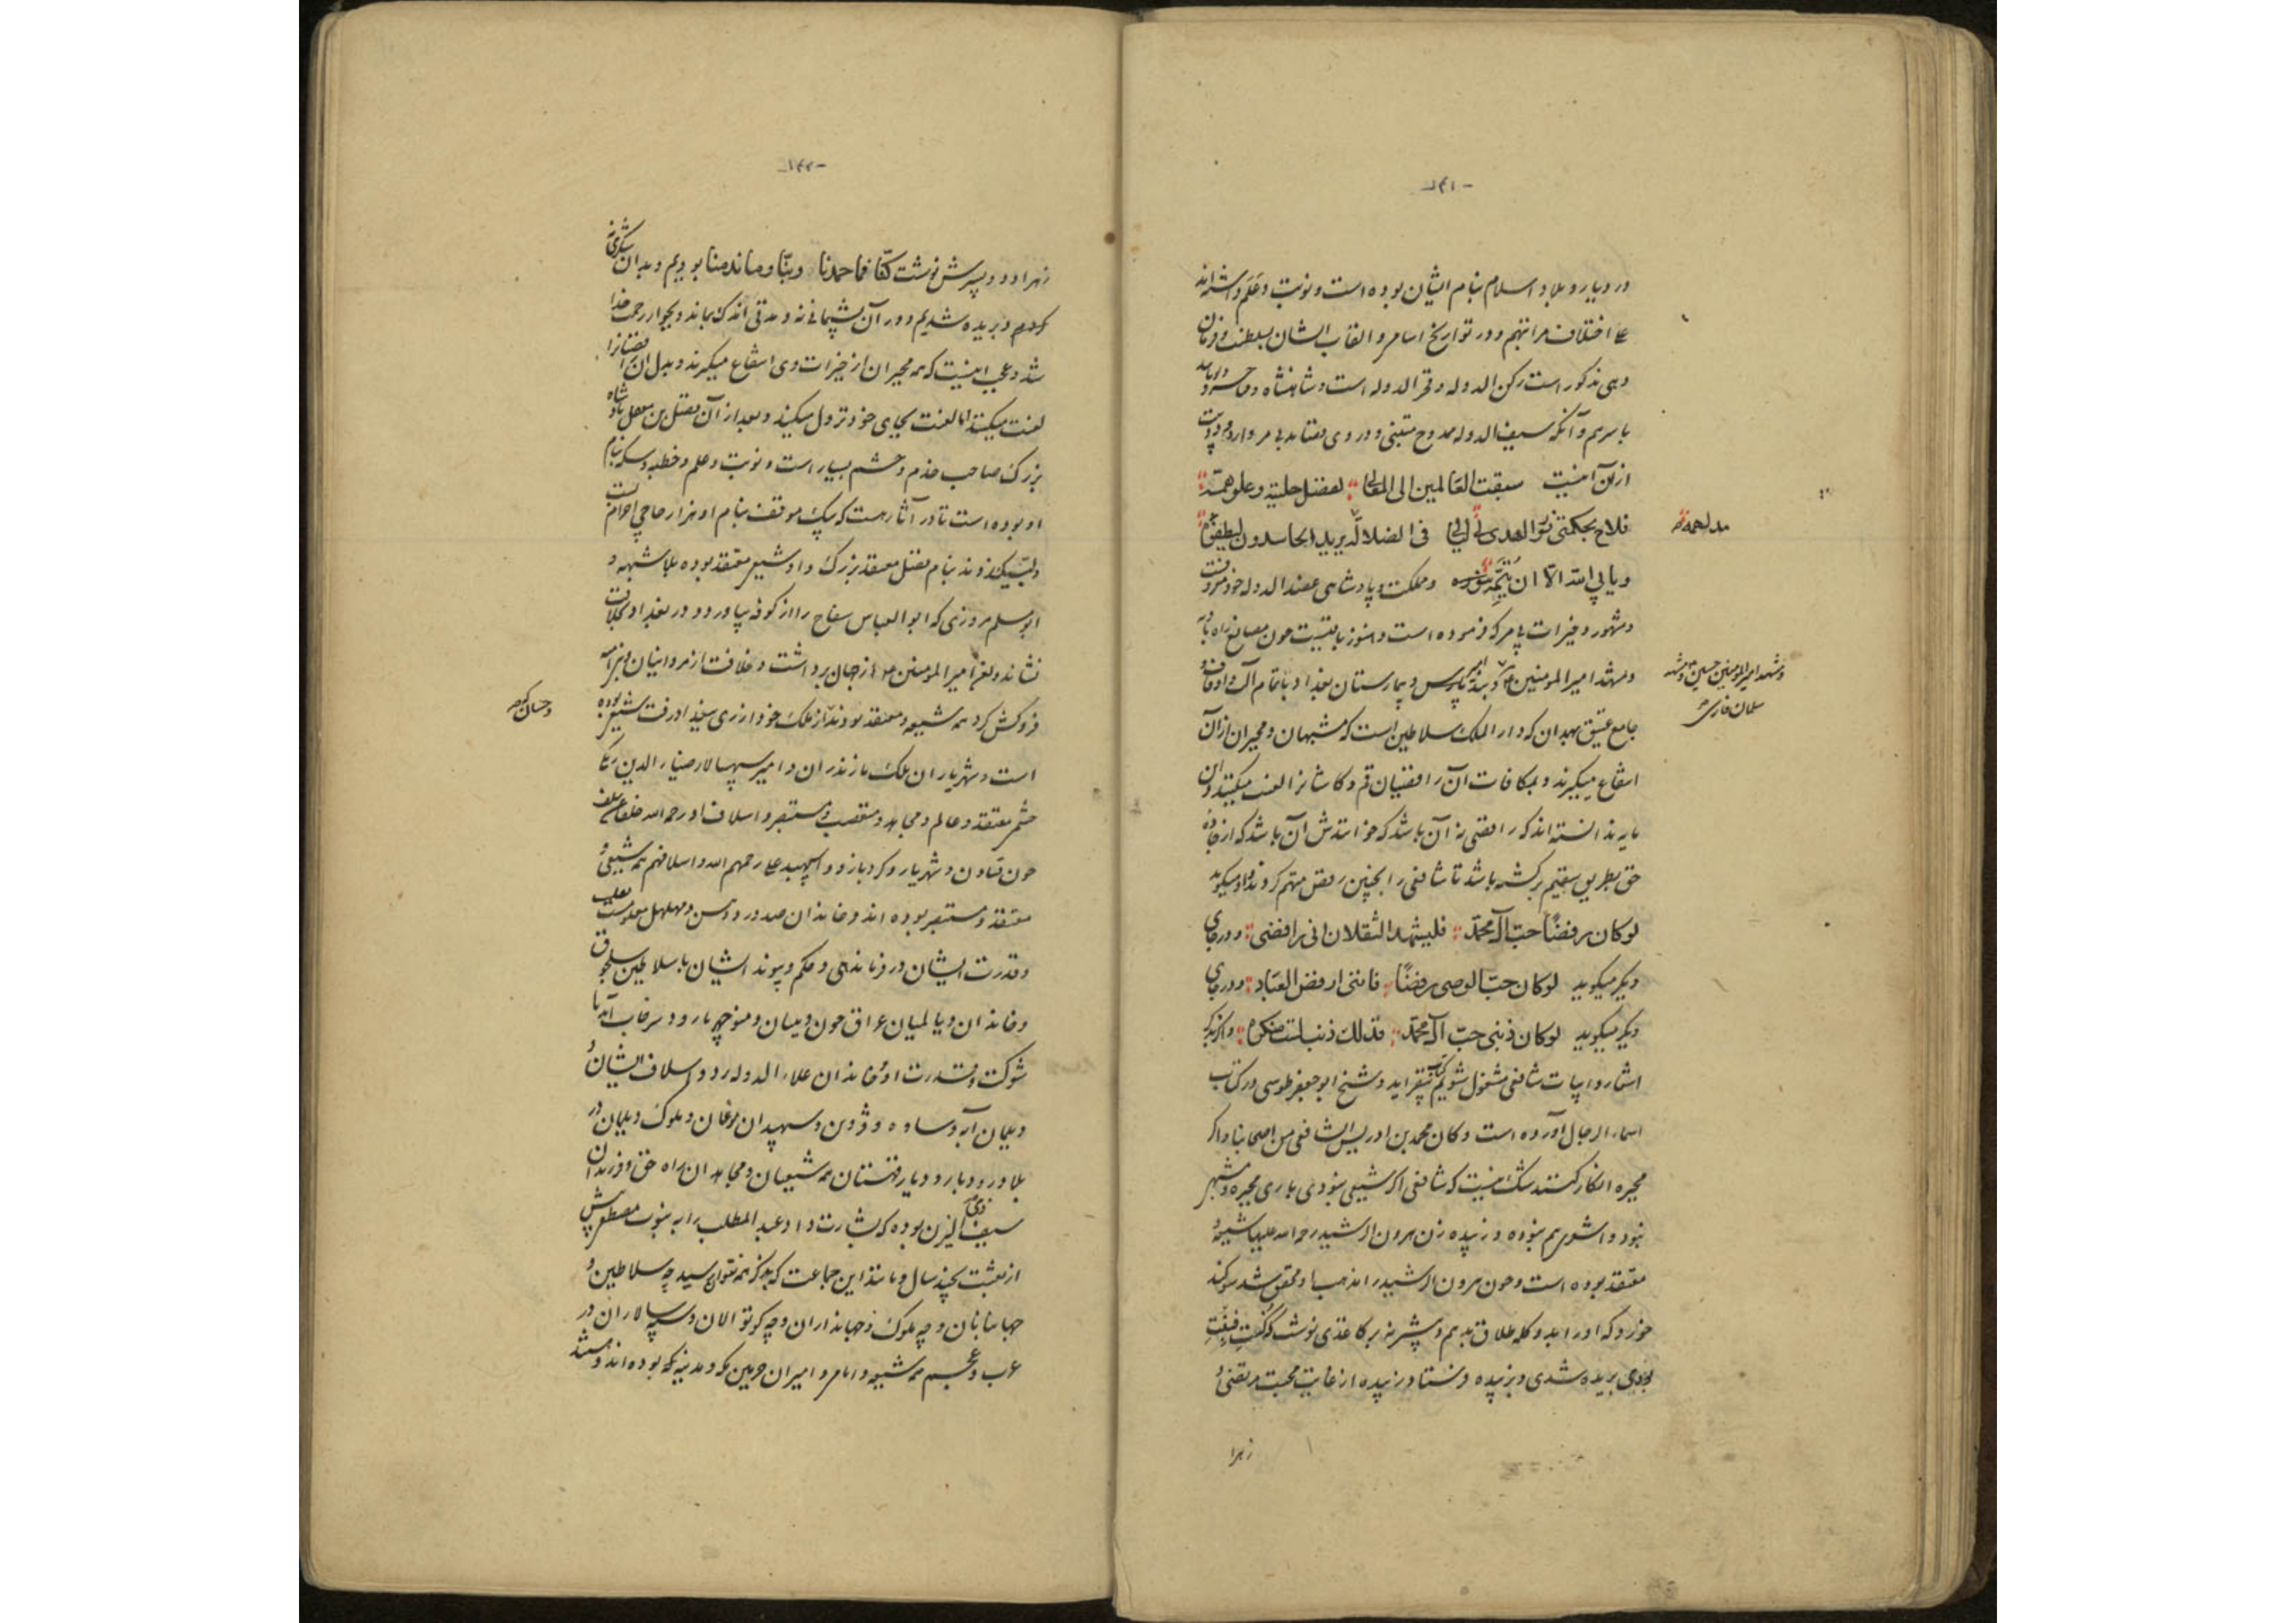 -۱۴۱-
در دیار و بلاد اسلام بنام ایشان بوده است و نوبت و علم داشته‌اند
علی اختلاف مراتبهم و در تواریخ اسامی و القاب ایشان بسلطنت و فرمان
دهی مذکور است رکن الدوله و فخر الدوله است و شاهنشاه و
باسرهم و آنکه سیف الدوله ممدوح متنبی و در وی قصاید بی مر دارد
ازان آنست سبقت العالمین الی المعالی بفضل خلیقة و علو همة
فلاح بحکمتی نور الهدی فی لیالی فی الضلالة یرید الحاسدون لیطفئوه
مدلهمة
و یابی الله الا ان یتمه و مملکت و پادشاهی عضد الدوله خود معروفست
و مشهور و خیرات بی مر که فرموده است و هنوز باقیست چون مصانع راه بادیه
و مشهد امیر المومنین و بند امیر پارس و بیمارستان بغداد با تمام آلت و اوقاف و
و مشهد امیر المومنین حسین و مشهد
سلمان فارسی
جامع عتیق بهمدان که دار الملک سلاطین است که مشبهان و مجبران ازان
انتفاع میگیرند و بمکافات آن رافضیان قم و کاشانرا لعنت میکنند و این
مایه ندانسته‌اند که رافضی نه آن باشد که خوانندش آن باشد که از جاده
حق بطریق سقیم برگشته باشد تا شافعی را بچنین رفض متهم کردند و او میگوید
لو کان رفضا حب آل محمد فلیشهد الثقلان انی رافضی و در جای
دیگر میگوید لو کان حب الوصی رفضا فاننی ارفض العباد و در جای
دیگر میگوید لو کان ذنبی حب آل محمد فذلک ذنب لست منکره و اگر بذکر
اشعار و ابیات شافعی مشغول شویم کتاب بیفزاید و شیخ ابو جعفر طوسی در کتاب
اسماء الرجال آورده است و کان محمد بن ادریس الشافعی من اصحابنا و اگر
مجبره انکار کنند شک نیست که شافعی اگر شیعی نبودی باری مجبره و مشبهی
نبود و اشعری هم نبوده و زبیده زن هرون الرشید رحمة الله علیها شیعیه و
معتقد بوده است و چون هرون الرشید را مذهب او محقق شد سوگند
خورد که او را بدو کلمه طلاق بدهم و بیش نه بر کاغذی نوشت کنت فبنت
بودی بریده شدی و بزبیده فرستاد زبیده از غایت محبت مرتضی و
زهرا
-۱۴۲-
زهرا در پسرش نوشت کنا فما حمدنا و بنا و ما ندمنا بودیم و بدان شکری نه
کردیم و بریده شدیم و در آن پشیمانی نه و مدتی اندک بماند و بجوار رحمت خدا
شد و عجب اینست که همه مجبران از خیرات وی انتفاع میگیرند و بدل آن رافضیانرا
لعنت میکنند اما لعنت بجای خود نزول میکند و بعد از آن مفتل بن معقل پادشاه
بزرگ صاحب خدم و حشم بسیار است و نوبت و علم و خطبه و سکه بنام
او بوده است تا در آثار هست که بیک موقف بنام او هزار حاجی احرام بست
و لبیک زدند بنام مفتل معتقد بزرگ و او شیعی معتقد بوده بلا شبهه و
ابو مسلم مروزی که ابو العباس سفاح را از کوفه بیاورد و در بغداد بخلافت
نشاند و لعن امیر المومنین از جهان برداشت و خلافت از مروانیان و بنی امیه
فروکش کرد همه شیعه و معتقد بودند و از ملک خود ازری ببغداد رفت شیعی بوده
است و شهریاران ملک مازندران و امیر سپهسالار ضیاء الدین
حشم معتقد و عالم و مجاهد و متعصب و مستبصر و اسلاف او رحمه الله خلفا عن سلف
چون قارن و شهریار و کردبازو و اسپهبد علی رحمهم الله و اسلافهم همه شیعی و
معتقد و مستبصر بوده‌اند و خاندان صدر و حسن و مهلهل معلومست
و قدرت ایشان در فرماندهی و حکم و پیوند ایشان با سلاطین سلجوق
و خاندان دیالمیان عراق چون ویسان و منوچهر بارود و سرخاب آبه با
شوکت و قدرت او و خاندان علاء الدوله رد و اسلاف ایشان و
دیلمان آبه و ساوه و قزوین و سپهبدان موغان و ملوک دیلمان در
بلاد رودبار و دیار قهستان همه شیعیان و مجاهدان راه حق و فرزندان
سیف ذی یزن بوده که بشارت داد عبد المطلب را به نبوت مصطفی پیش
از بعثت بچند سال و مانند این جماعت که بذکر همه نتوان رسید چه سلاطین و
جهانبانان و چه ملوک و جهانداران و چه کوتوالان و سپهسالاران در
عرب و عجم همه شیعه و امامی و امیران حرمین مکه و مدینه که بوده‌اند و هستند